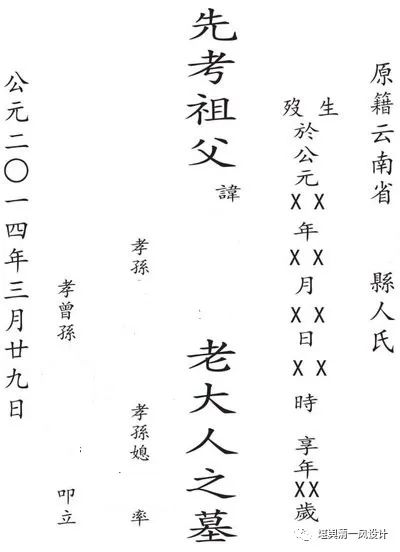 原籍云南省 縣人氏
生歿於公元XX年XX月XX日XX時 享年XX歲
先考祖父 諱 老大人之墓
孝孫 孝孫媳 率
孝曾孫 叩立
公元二〇一四年三月廿九日
堪舆清一风设计